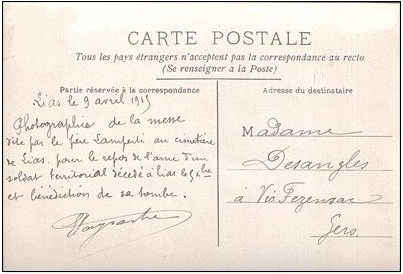 CARTE POSTALE
Tous les pays étrangers n'acceptent pas la correspondance au recto
(Se renseigner a la Poste)
Partie réservée à la correspondance
Lias le 9 avril 1915
Photographie de la messe
dite par le père Lamperti au cimetière
de Lias. pour le repos de l'ame d'un
soldat territorial décédé à Lias le 5 xbre
et bénédiction de sa tombe.
Adresse du destinataire
Madame
Desangles
à Vic Fezensac
Gers.